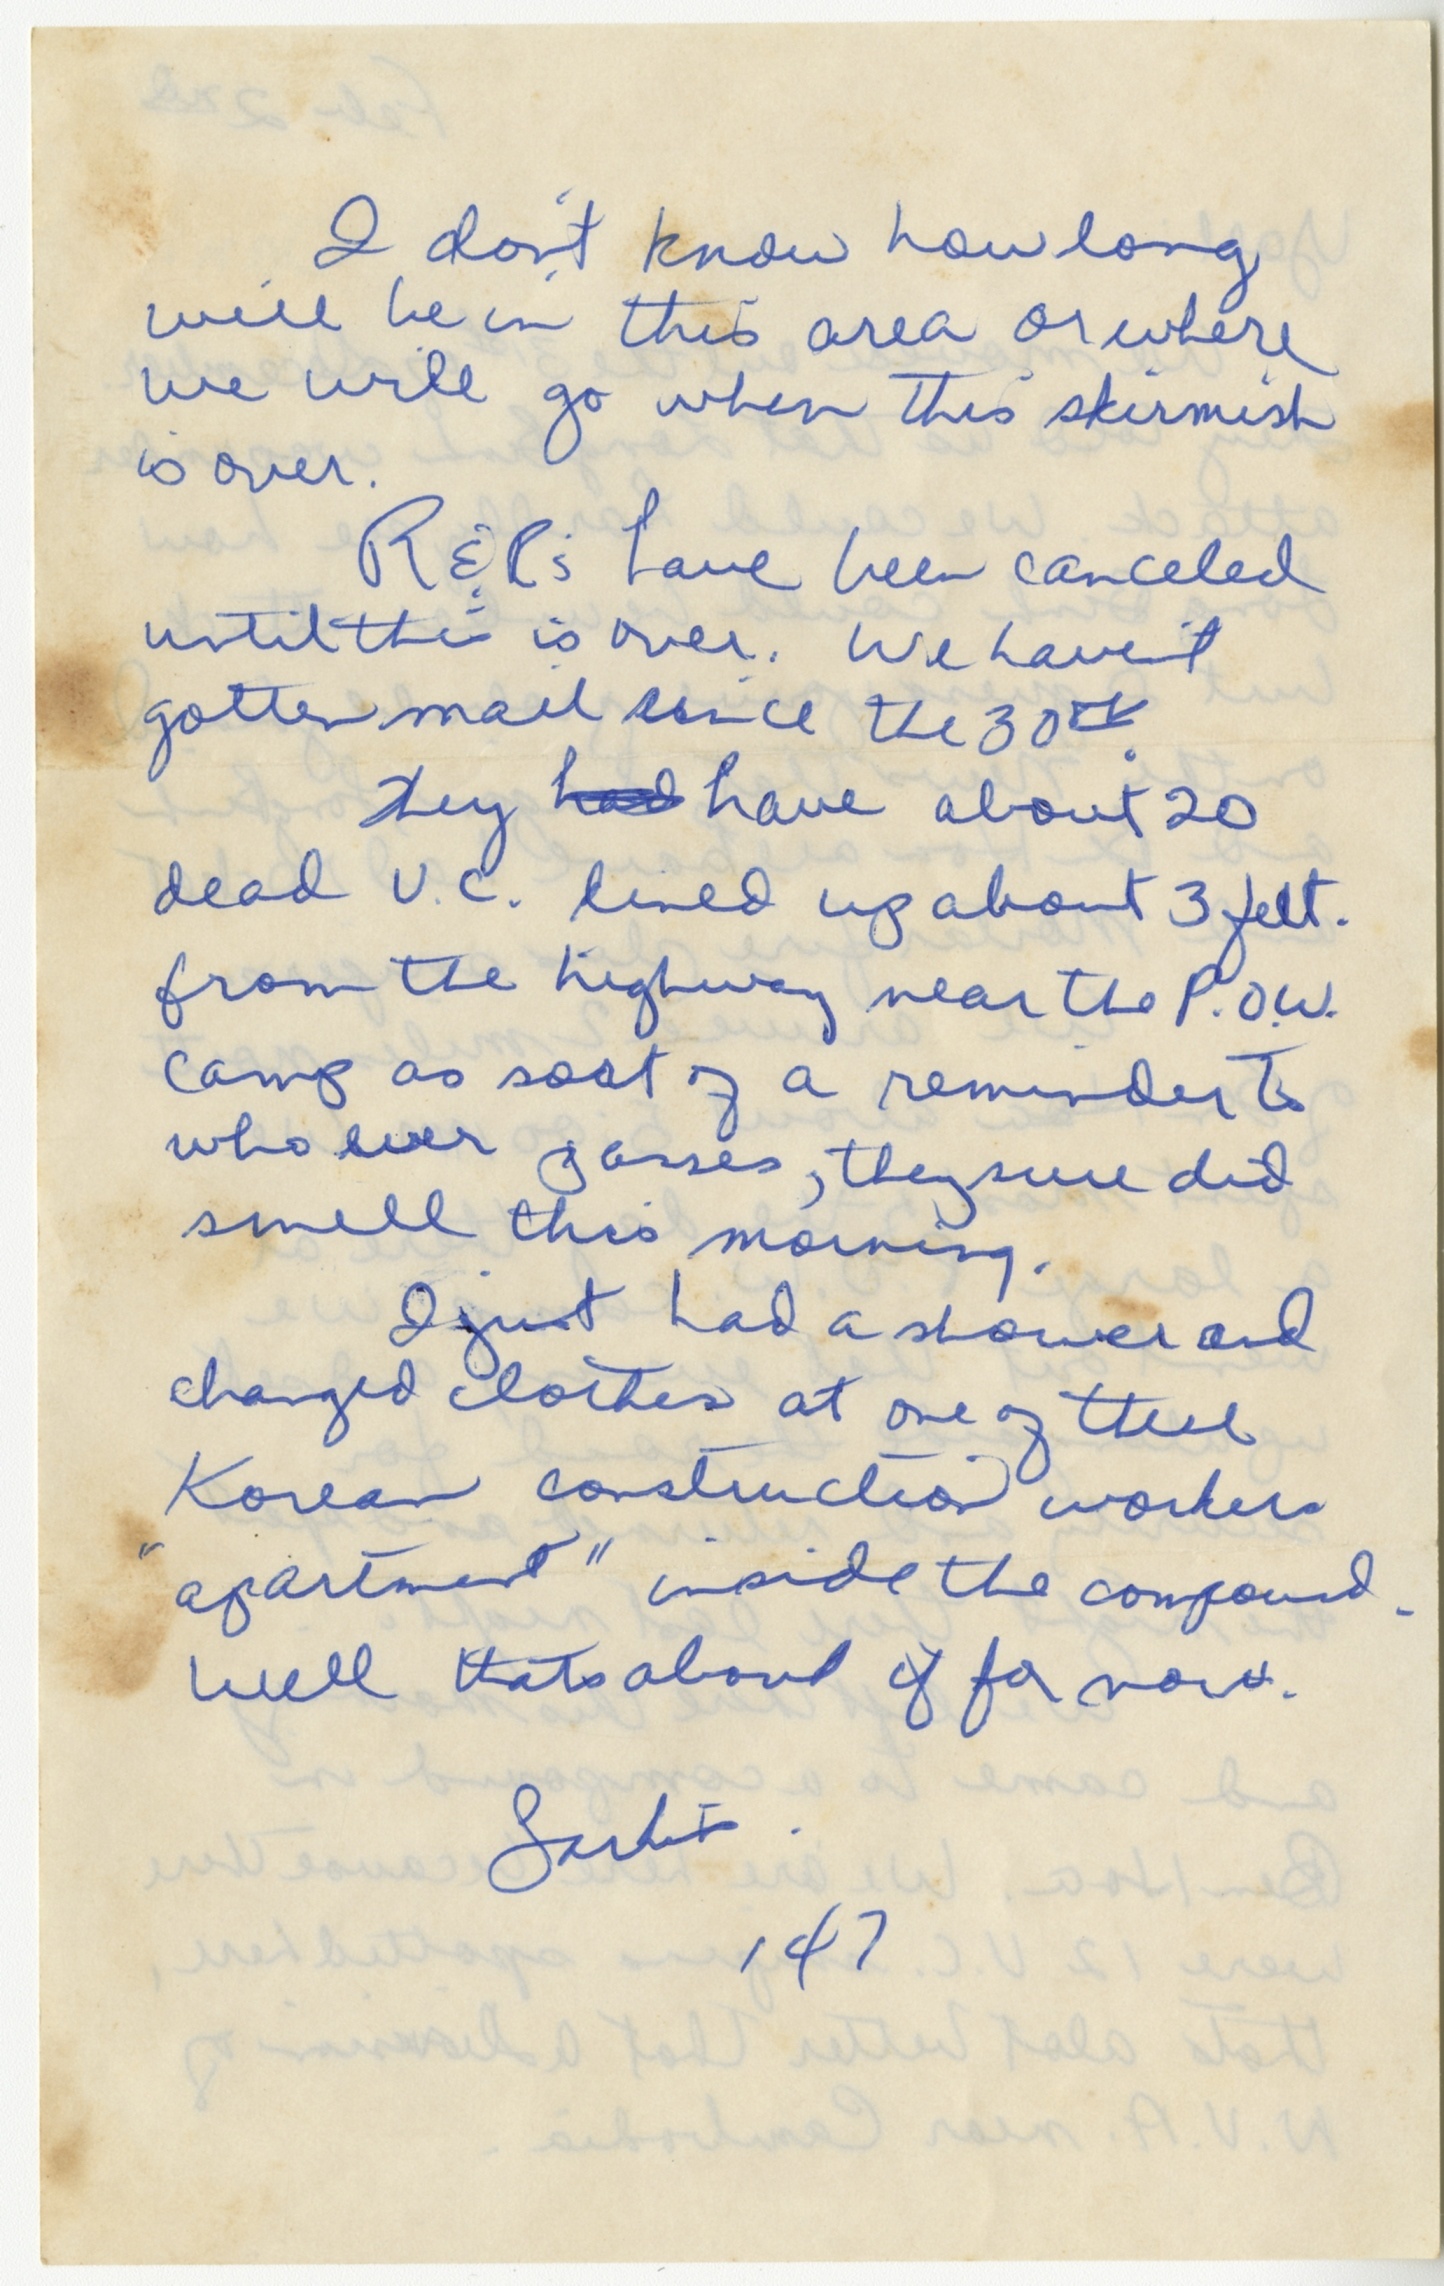 I don't know how long
will be in this area or where
we will go when this skirmish
is over.
R&R's have been canceled
until this is over. We haven't
gotten mail since the 30th.
They had have about 20
dead V.C. lined up about 3 feet.
from the highway near the P.O.W.
camp as sort of a reminder to
who ever passes, they sure did
smell this morning.
I just had a shower and
changed clothes at one of these
Korean construction workers
"apartment" inside the compound.
Well thats about it for now.
147